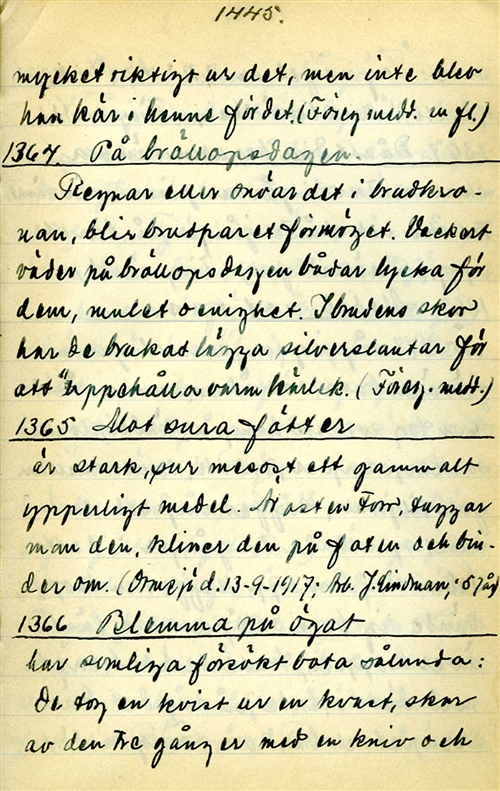 1445.
mycket riktigt ur det, men inte blev
han kär i henne för det. (Föreg medd. m fl.)
1364 På bröllopsdagen.
Regnar eller snöar det i brudkro-
nan, blir brudparet förmöget. Vackert
väder på bröllopsdagen bådar lycka för
dem, mulet oenighet. I brudens skor
har de brukat lägga silverslantar för
att "upphålla varm kärlek. (Föreg. medd.)
1365 Mot sura fötter
är stark, sur mesost ett gammalt
ypperligt medel. Är osten torr, tuggar
man den, kliner den på foten och bin-
der om. (Ormsjö d. 13-9-1917; Arb. J. Lindman, 57 år)
1366 Blemma på ögat
har somliga försökt bota sålunda:
De tog en kvist ur en kvast, skar
av den tre gånger med en kniv och